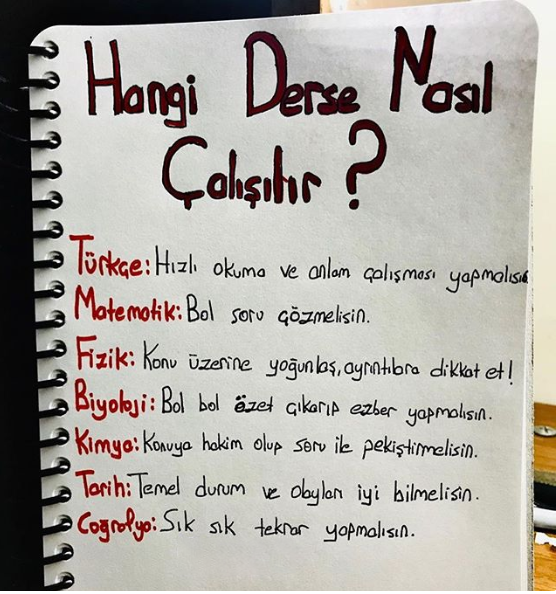 Hangi Derse Nasıl
Çalışılır ?
Türkçe: Hızlı okuma ve anlam çalışması yapmalısın
Matematik: Bol soru çözmelisin.
Fizik: Konu üzerine yoğunlaş, ayrıntılara dikkat et!
Biyoloji: Bol bol özet çıkarıp ezber yapmalısın.
Kimya: Konuya hakim olup soru ile pekiştirmelisin.
Tarih: Temel durum ve olayları iyi bilmelisin.
Coğrafya: Sık sık tekrar yapmalısın.